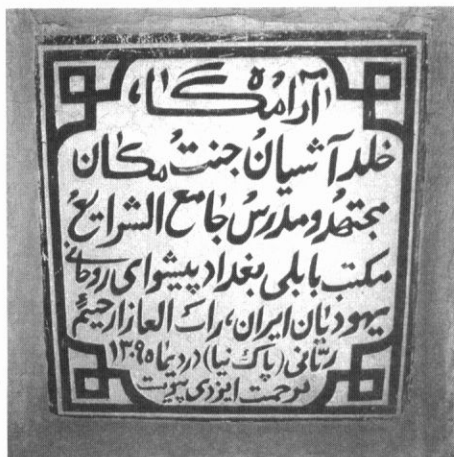 آرامگاه
خلد آشیان جنت مکان
مجتهد و مدرس جامع الشرایع
مکتب بابلی بغداد پیشوای روحانی
یهودیان ایران، راب العازار حییم
ربانی (پاک نیا) در دیماه ۱۳۰۹
بر حمت ایزدی پیوست